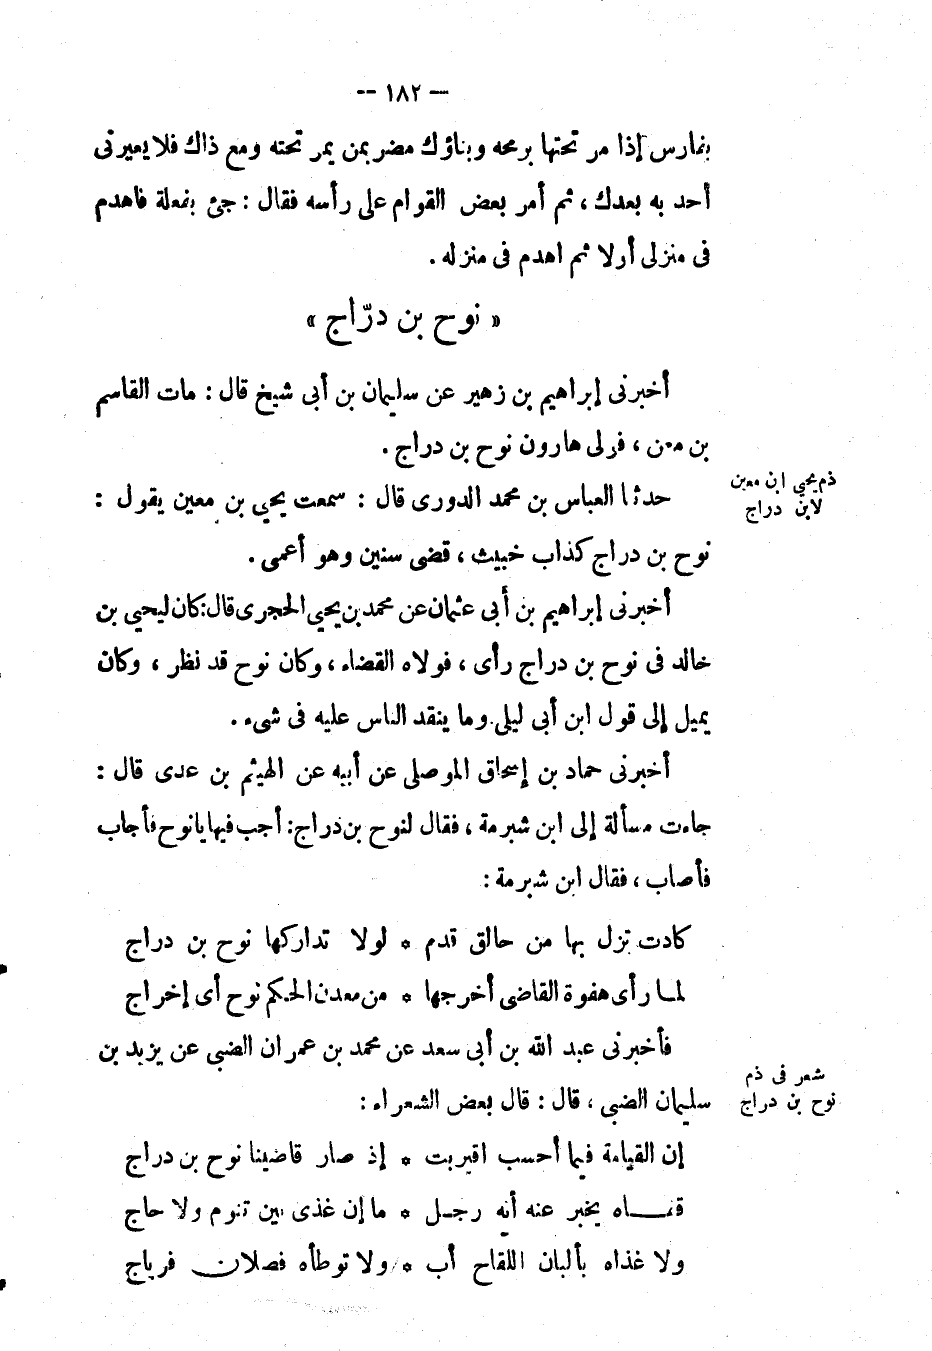 -- ١٨٢ --
بفارس إذا مر تحتها برمحه وبناؤك مضر بمن يمر تحته ومع ذاك فلا يعيرنى
أحد به بعدك ، ثم أمر بعض القوام على رأسه فقال : جئ بفعلة فاهدم
فى منزلى أولا ثم اهدم فى منزله .
« نوح بن درّاج »
أخبرنى إبراهيم بن زهير عن سليمان بن أبى شيخ قال : مات القاسم
بن معن ، فولى هارون نوح بن دراج .
ذم يحيي ابن معين
لابن دراج
حدثنا العباس بن محمد الدورى قال : سمعت يحيي بن معين يقول :
نوح بن دراج كذاب خبيث ، قضى سنين وهو أعمى .
أخبرنى إبراهيم بن أبى عثمان عن محمد بن يحيي الحجرى قال : كان ليحيي بن
خالد فى نوح بن دراج رأى ، فولاه القضاء ، وكان نوح قد نظر ، وكان
يميل إلى قول ابن أبى ليلى وما ينقد الناس عليه فى شىء .
أخبرنى حماد بن إسحاق الموصلى عن أبيه عن الهيثم بن عدى قال :
جاءت مسألة إلى ابن شبرمة ، فقال لنوح بن دراج : أجب فيها يا نوح فأجاب
فأصاب ، فقال ابن شبرمة :
كادت تزل بها من حالق قدم * لولا تداركها نوح بن دراج
لما رأى هفوة القاضى أخرجها * من معدن الحكم نوح أى إخراج
فأخبرنى عبد الله بن أبى سعد عن محمد بن عمران الضبى عن يزيد بن
سليمان الضبى ، قال : قال بعض الشعراء :
شعر فى ذم
نوح بن دراج
إن القيامة فيما أحسب اقتربت * إذ صار قاضينا نوح بن دراج
يخبر عنه أنه رجل * ما إن غذى بين تنوم ولا حاج
ولا غذاه بألبان اللقاح أب * ولا توطأه فصلان